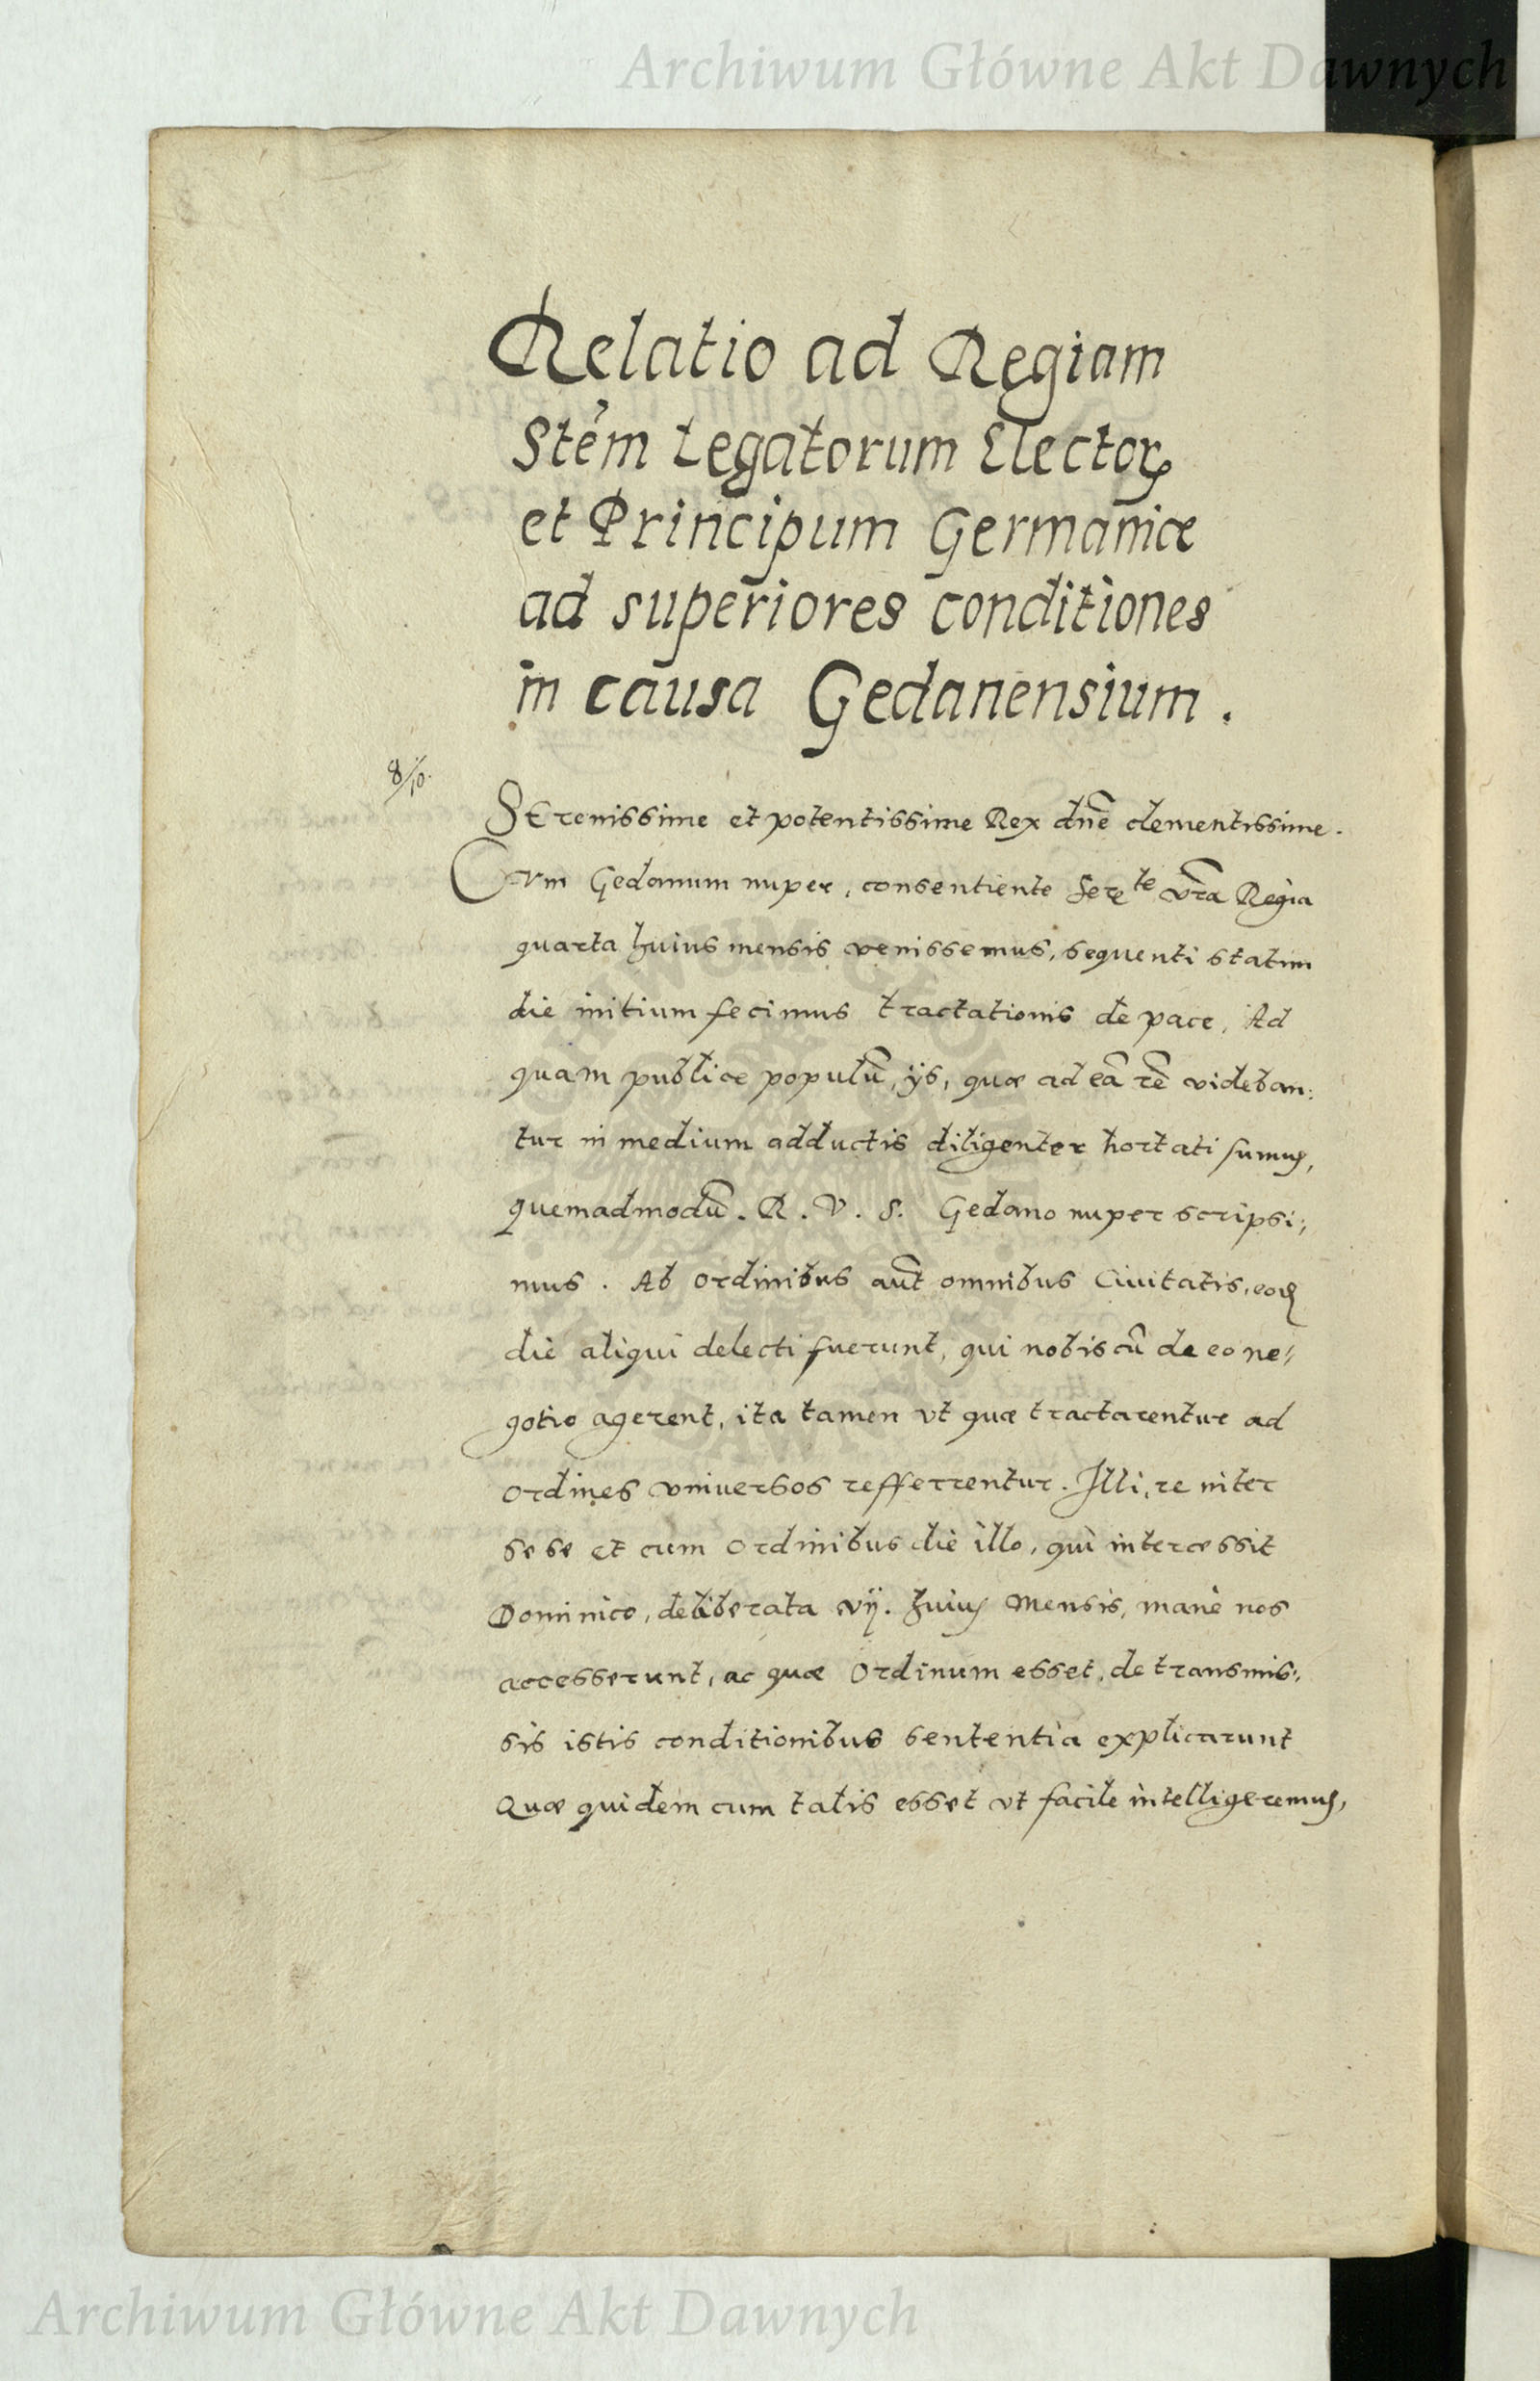 Archiwum Główne Akt Dawnych
Relatio ad Regiam
Stem̃ Legatorum Electoꝝ
et Principum Germaniæ
ad superiores conditiones
in causa Gedanensium.
8/10.
SErenissime et potentissime Rex dñe clementissime.
Cvm Gedanum nuper, consentiente Sereᵗᵉ vr̃a Regia
quarta huius mensis venissemus, sequenti statim
die initium fecimus tractationis de pace, Ad
quam publice populũ, ijs, quæ ad eã rẽ videban:
tur in medium adductis diligenter hortati sumus,
quemadmodũ. R. V. S. Gedano nuper scripsi:
mus. Ab ordinibus aut̃ omnibus Ciuitatis, eod
die aliqui delecti fuerunt, qui nobiscũ de eo ne:
gotio agerent, ita tamen vt quæ tractarentur ad
ordines vniuersos refferrentur. Illi, re inter
se se et cum ordinibus die illo, qui intercessit
Dominico, deliberata vij. huius mensis, manè nos
accesserunt, ac quæ Ordinum esset, de transmis:
sis istis conditionibus sententia explicarunt
Quæ quidem cum talis esset vt facile intelligeremus,
Archiwum Główne Akt Dawnych